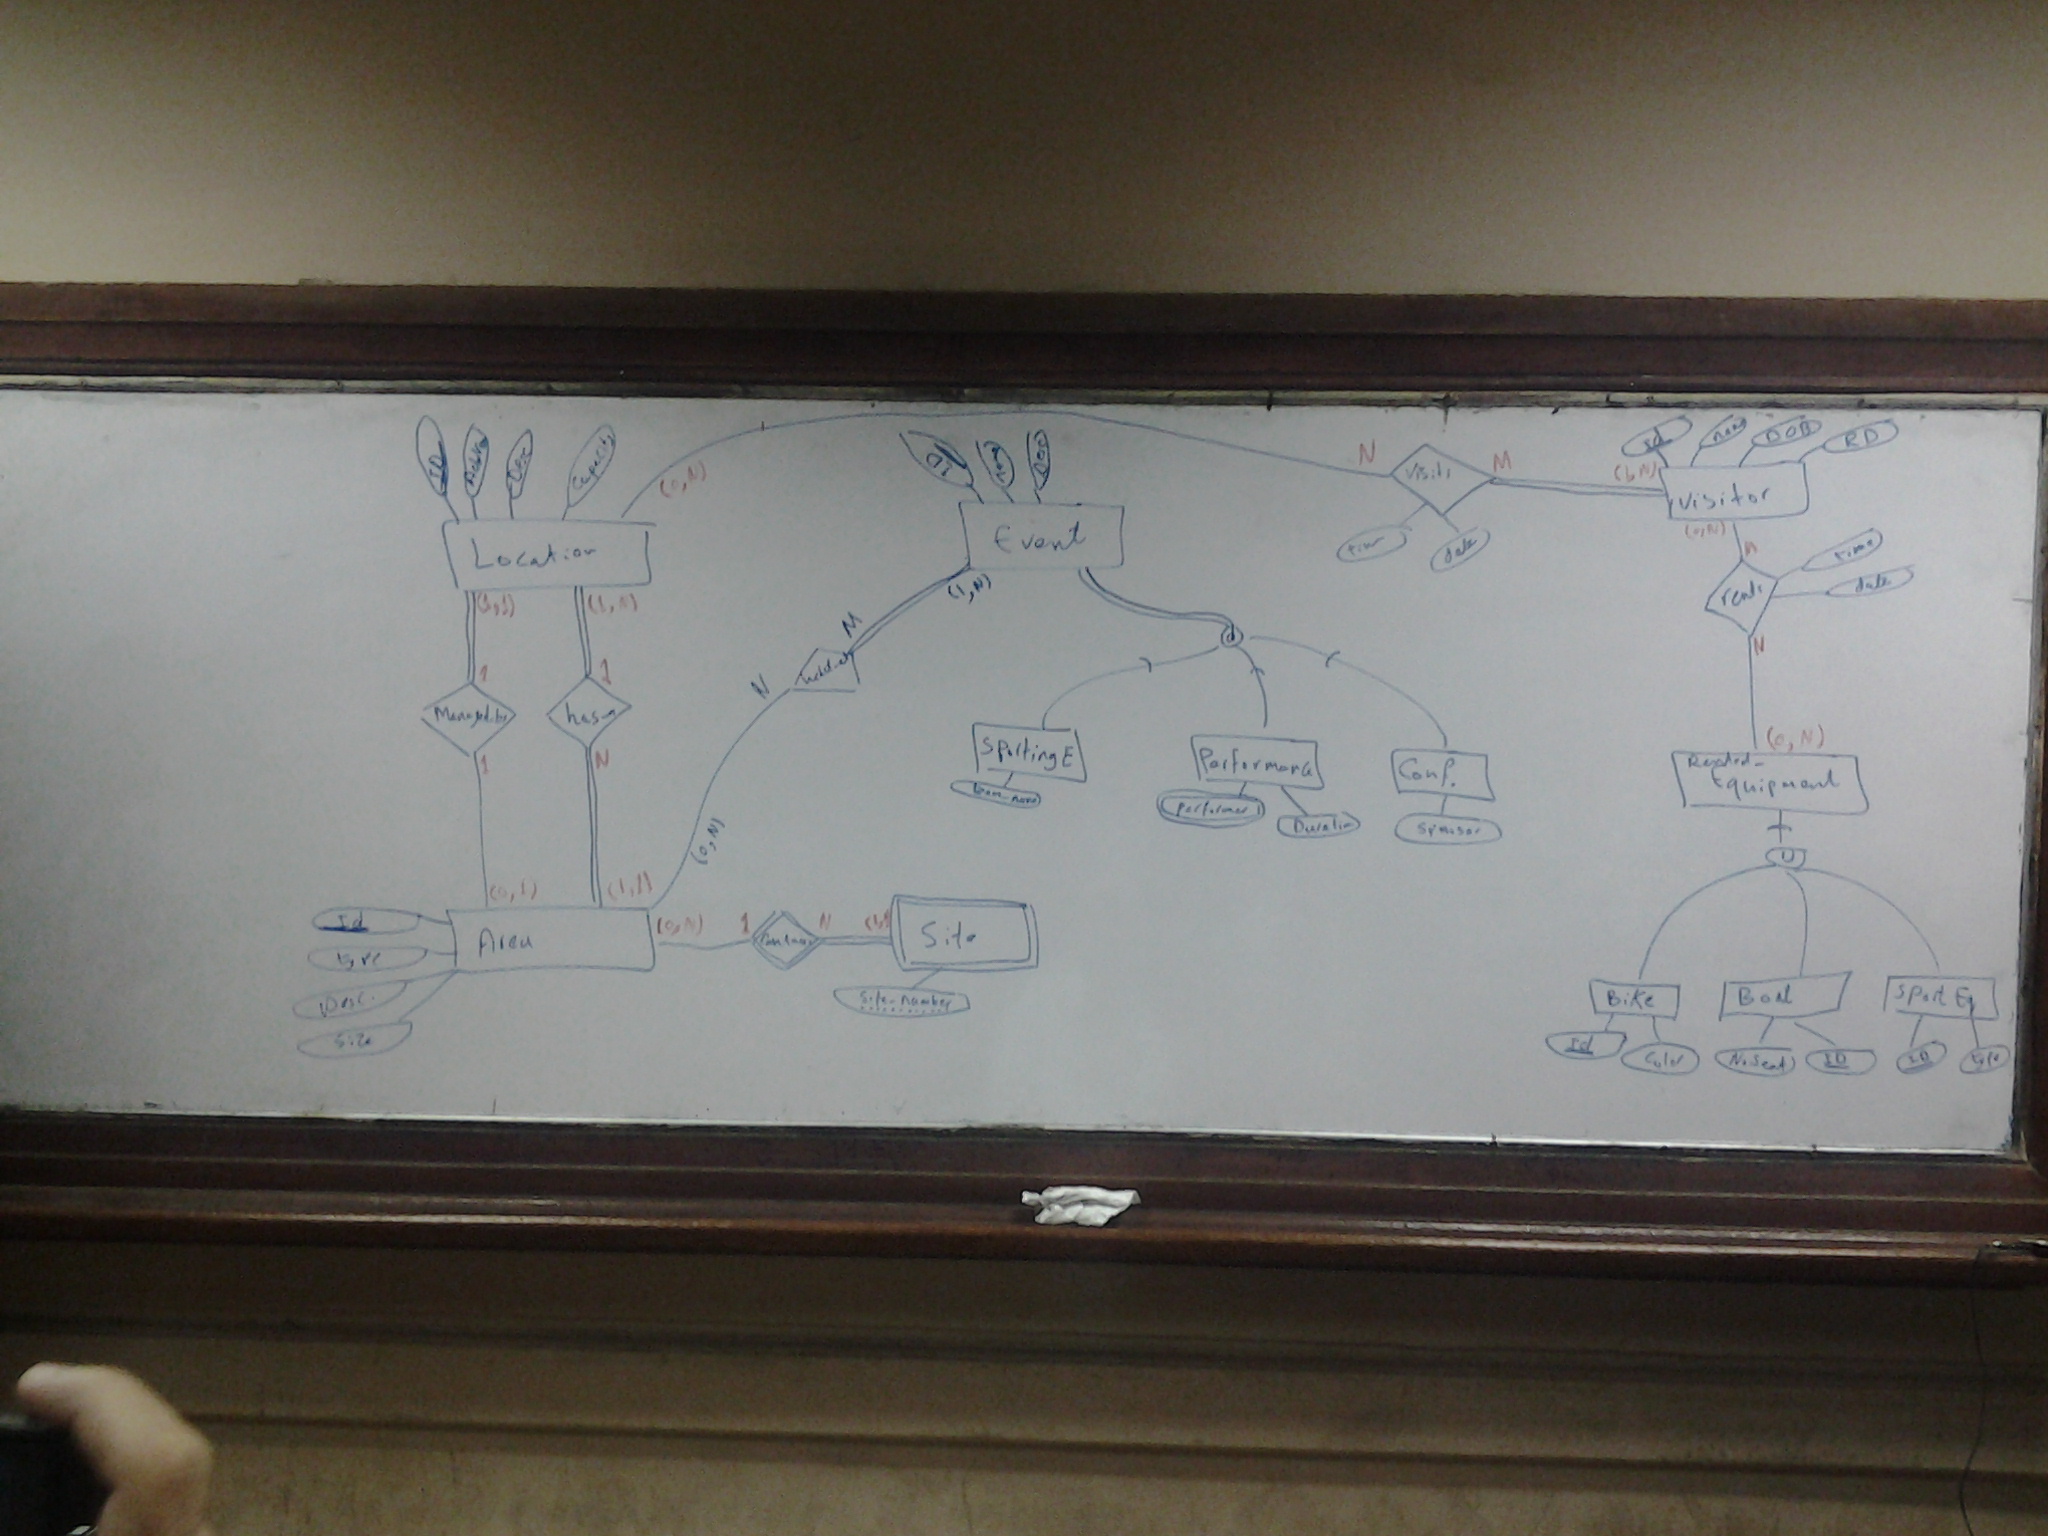 ID
Desc
Capacity
(0,N)
Location
(1,1)
(1,N)
1
1
has
1
N
(0,1)
(1,1)
Id
type
Desc.
Size
Area
(0,N)
1
N
Site
Site-number
ID
name
Event
(1,N)
M
N
(0,N)
d
SportingE
team-name
Performance
performer
Duration
Conf.
Sponsor
N
visits
M
time
date
Id
name
DOB
RD
(1,N)
visitor
(0,N)
M
rents
time
date
N
(0,N)
Rented-
Equipment
U
Bike
Id
Color
Boat
No.Seats
ID
Sport Eq
ID
type